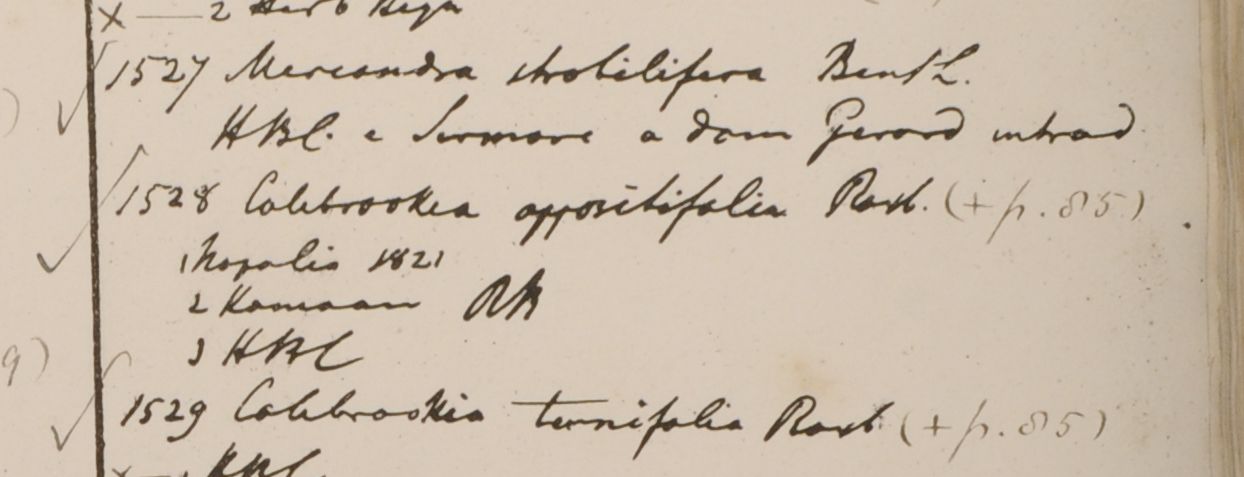 x — 2 Herb Regn
1527 Meriandra strobilifera Benth.
HBC. e Sirmore a dom Gerard introd
1528 Colebrookea oppositifolia Roxb. (+ p. 85)
1 Napalia 1821
2 Kamaon RB
3 HBC
1529 Colebrookia ternifolia Roxb (+ p. 85)
x — 1 HBC
9)